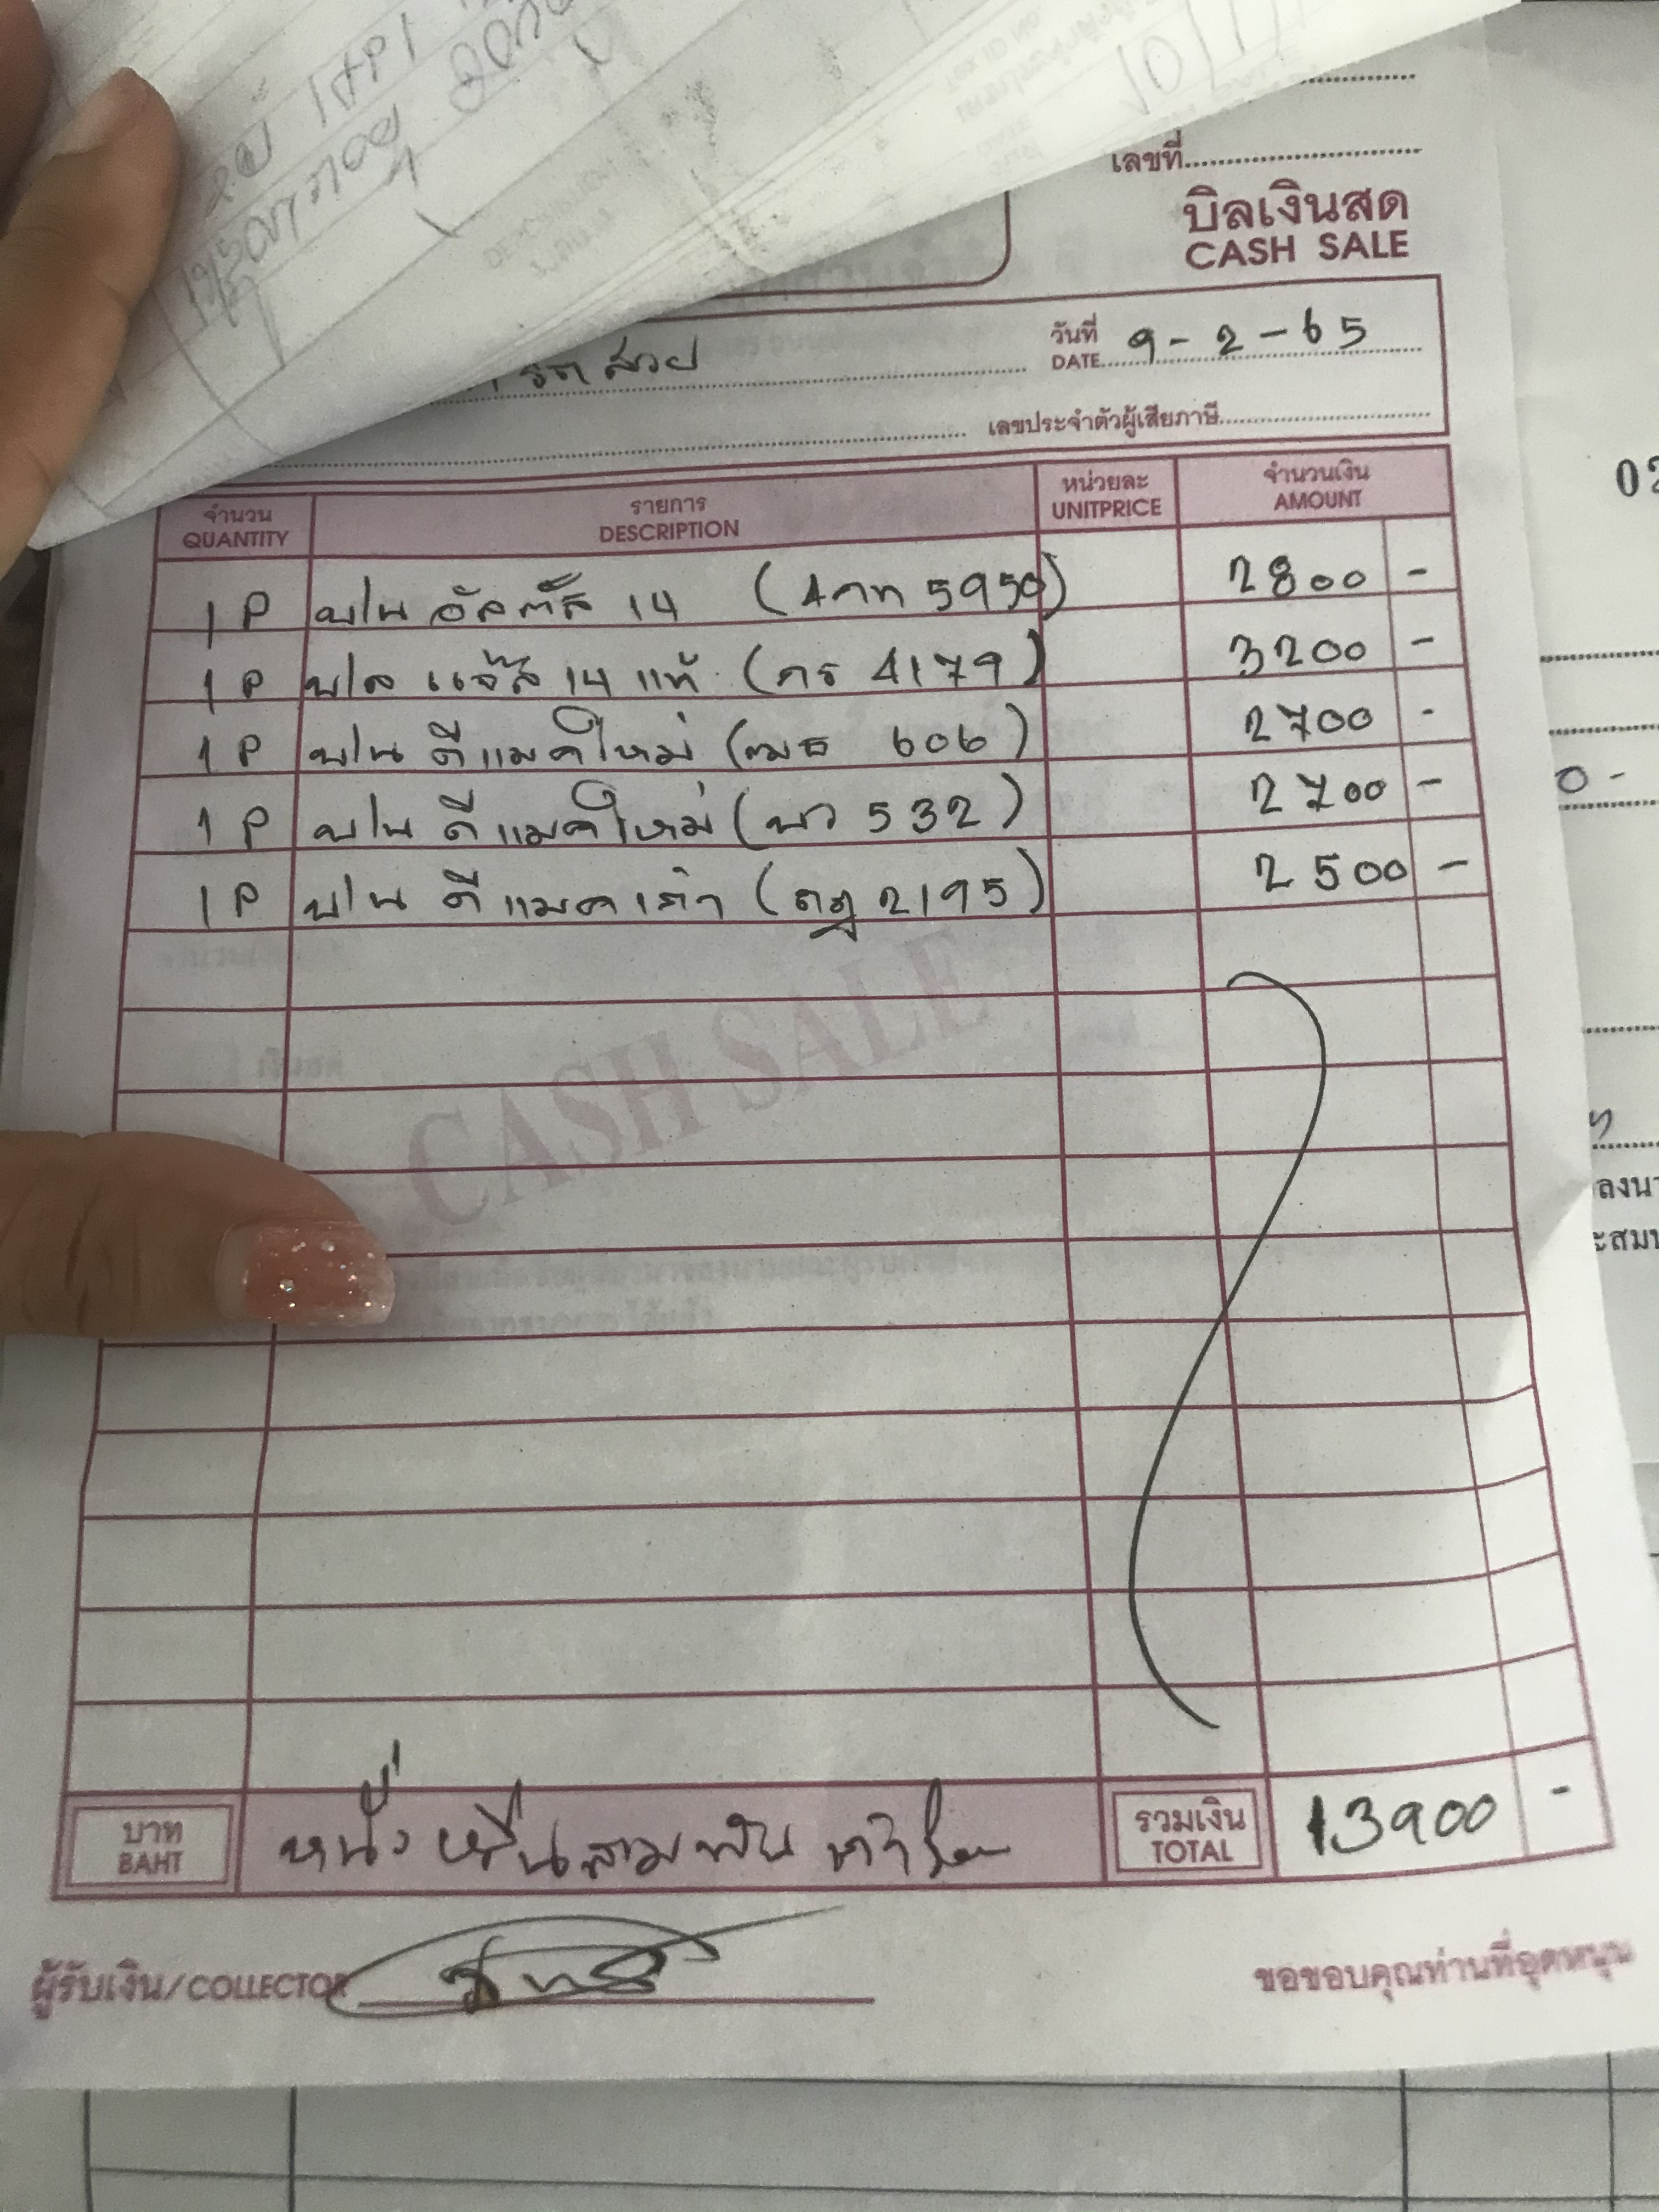 เลขที่
บิลเงินสด
CASH SALE
รถสวย
วันที่
DATE 9-2-65
เลขประจำตัวผู้เสียภาษี
จำนวน รายการ หน่วยละ จำนวนเงิน
QUANTITY DESCRIPTION UNITPRICE AMOUNT
1 P บ/น อัลติส 14 (4กท 5950) 2800 -
1 P บ/ล แจ๊ส 14 แท้ (กร 4179) 3200 -
1 P บ/น ดีแมคใหม่ (ฒธ 606) 2700 -
1 P บ/น ดีแมคใหม่ (บว 532) 2700 -
1 P บ/น ดีแมคเก่า (ฎ 2195) 2500 -
CASH SALE
บาท หนึ่งหมื่นสามพันเก้าร้อย รวมเงิน 13900 -
BAHT TOTAL
ผู้รับเงิน/COLLECTOR
ขอขอบคุณท่านที่อุดหนุน